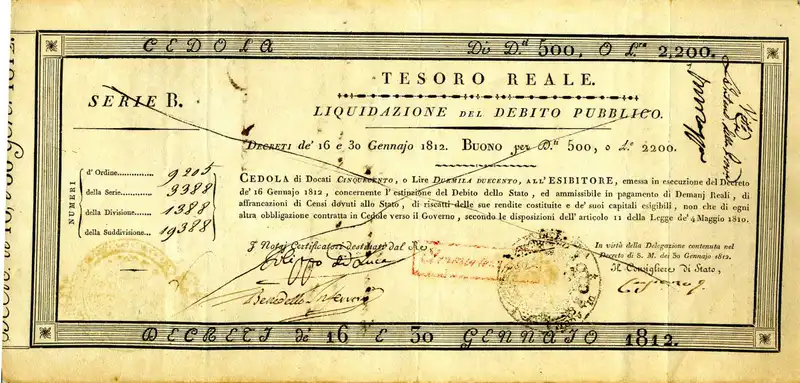 CEDOLA Di D.ti 500, O L.re 2,200.
TESORO REALE.
SERIE B.
LIQUIDAZIONE DEL DEBITO PUBBLICO.
DECRETI de' 16 e 30 Gennajo 1812. BUONO per D.ti 500, o L.e 2200.
NUMERI
d'Ordine............. 9205
della Serie........... 3388
della Divisione...... 1388
della Suddivisione... 19388
CEDOLA di Docati CINQUECENTO, o Lire DUEMILA DUECENTO, ALL'ESIBITORE, emessa in esecuzione del Decreto
de' 16 Gennajo 1812, concernente l'estinzione del Debito dello Stato, ed ammissibile in pagamento di Demanj Reali, di
affrancazioni di Censi dovuti allo Stato, di riscatti delle sue rendite costituite e de' suoi capitali esigibili, non che di ogni
altra obbligazione contratta in Cedole verso il Governo, secondo le disposizioni dell'articolo 11 della Legge de' 4 Maggio 1810.
I Notaj Certificatori destinati dal Re
In virtù della Delegazione contenuta nel
Decreto di S. M. dei 30 Gennajo 1812.
Il Consigliere di Stato,
DECRETI de' 16 E 30 GENNAJO 1812.